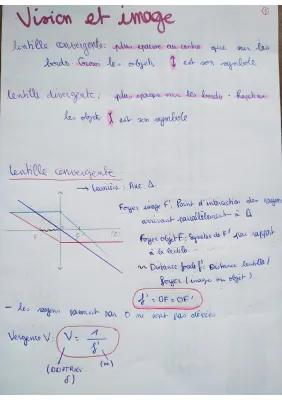 Vision et image
①
lentille convergente: plus épaisse au centre que sur les
bords. les objets ↕ est son symbole
lentille divergente: plus épaisse sur les bords.
les objets est son symbole
Lentille convergente
→ Lumière: Axe Δ
Foyer image F': Point d'intersection des rayons
arrivant parallèlement à Δ
Foyer objet F: Symétrie de F' par rapport
à la lentille
Distance focale f': Distance lentille/
foyer (image ou objet)
f' = OF = OF'
- les rayons passant par O ne sont pas déviés
Vergence V: V = 1/f'
(DIOPTRIES δ) (m)